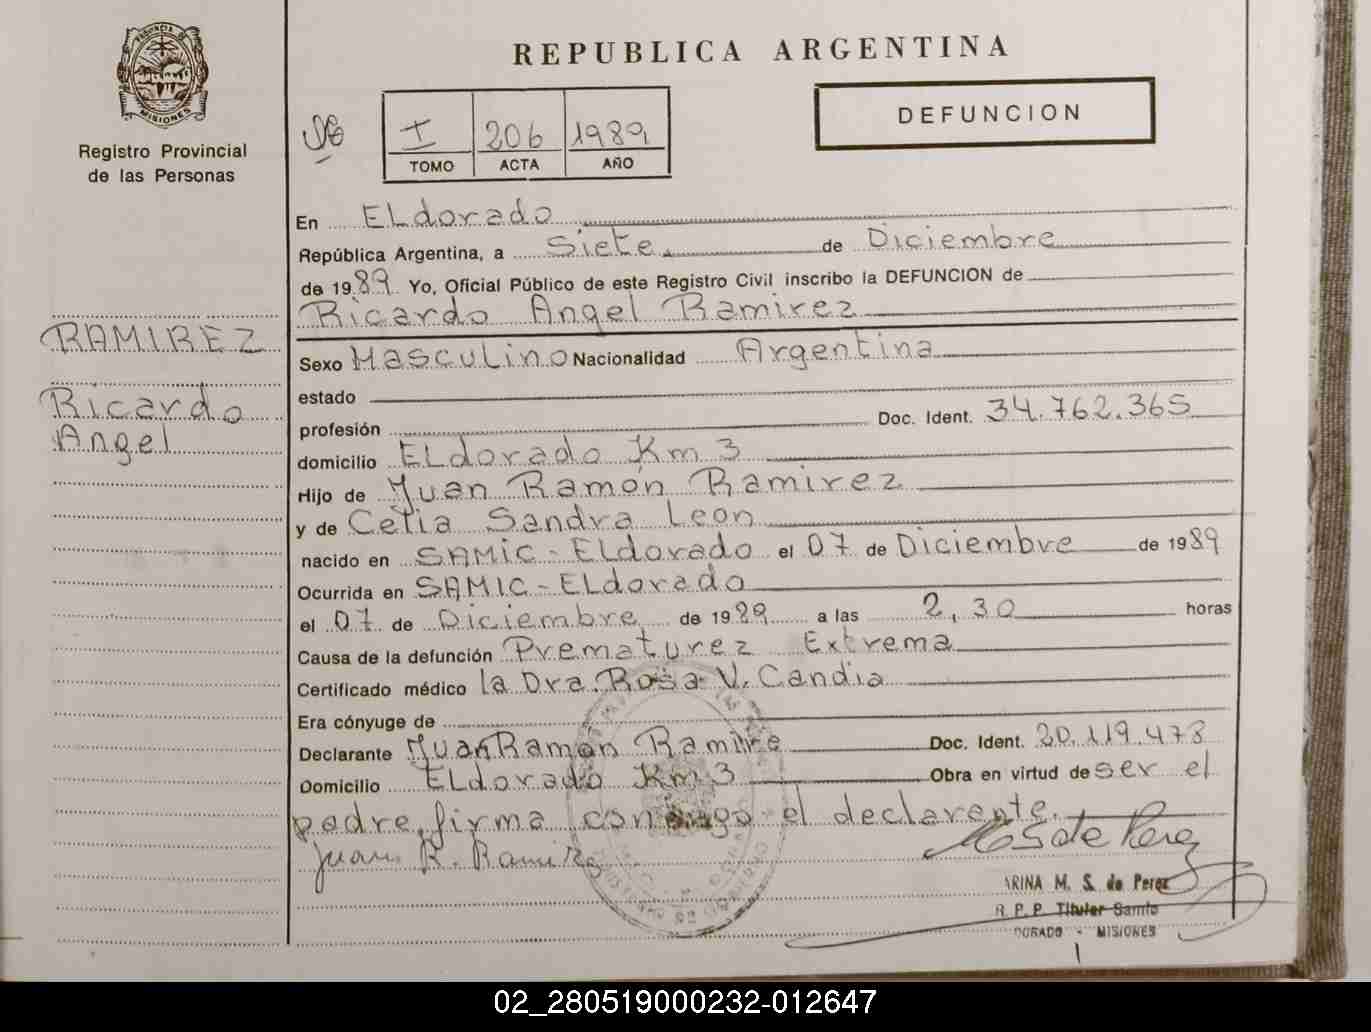 PROVINCIA DE
MISIONES
Registro Provincial
de las Personas
REPUBLICA ARGENTINA
I 206 1989
TOMO ACTA AÑO
DEFUNCION
En ELdorado
República Argentina, a Siete de Diciembre
de 1989 Yo, Oficial Público de este Registro Civil inscribo la DEFUNCION de
Ricardo Angel Ramirez
RAMIREZ
Ricardo
Angel
Sexo Masculino Nacionalidad Argentina
estado
profesión Doc. Ident. 34.762.365
domicilio ELdorado Km 3
Hijo de Juan Ramón Ramirez
y de Celia Sandra Leon
nacido en SAMIC - ELdorado el 07 de Diciembre de 1989
Ocurrida en SAMIC - ELdorado
el 07 de Diciembre de 1989 a las 2,30 horas
Causa de la defunción Prematurez Extrema
Certificado médico la Dra. Rosa V. Candia
Era cónyuge de
Declarante Juan Ramon Ramire Doc. Ident. 20.119.473
Domicilio ELdorado Km 3 Obra en virtud de ser el
padre, firma conmigo el declarante.
Juan R. Ramirez
de Perez
ARINA M. S. de Perez
R. P. P. Titular
DORADO - MISIONES
02_280519000232-012647